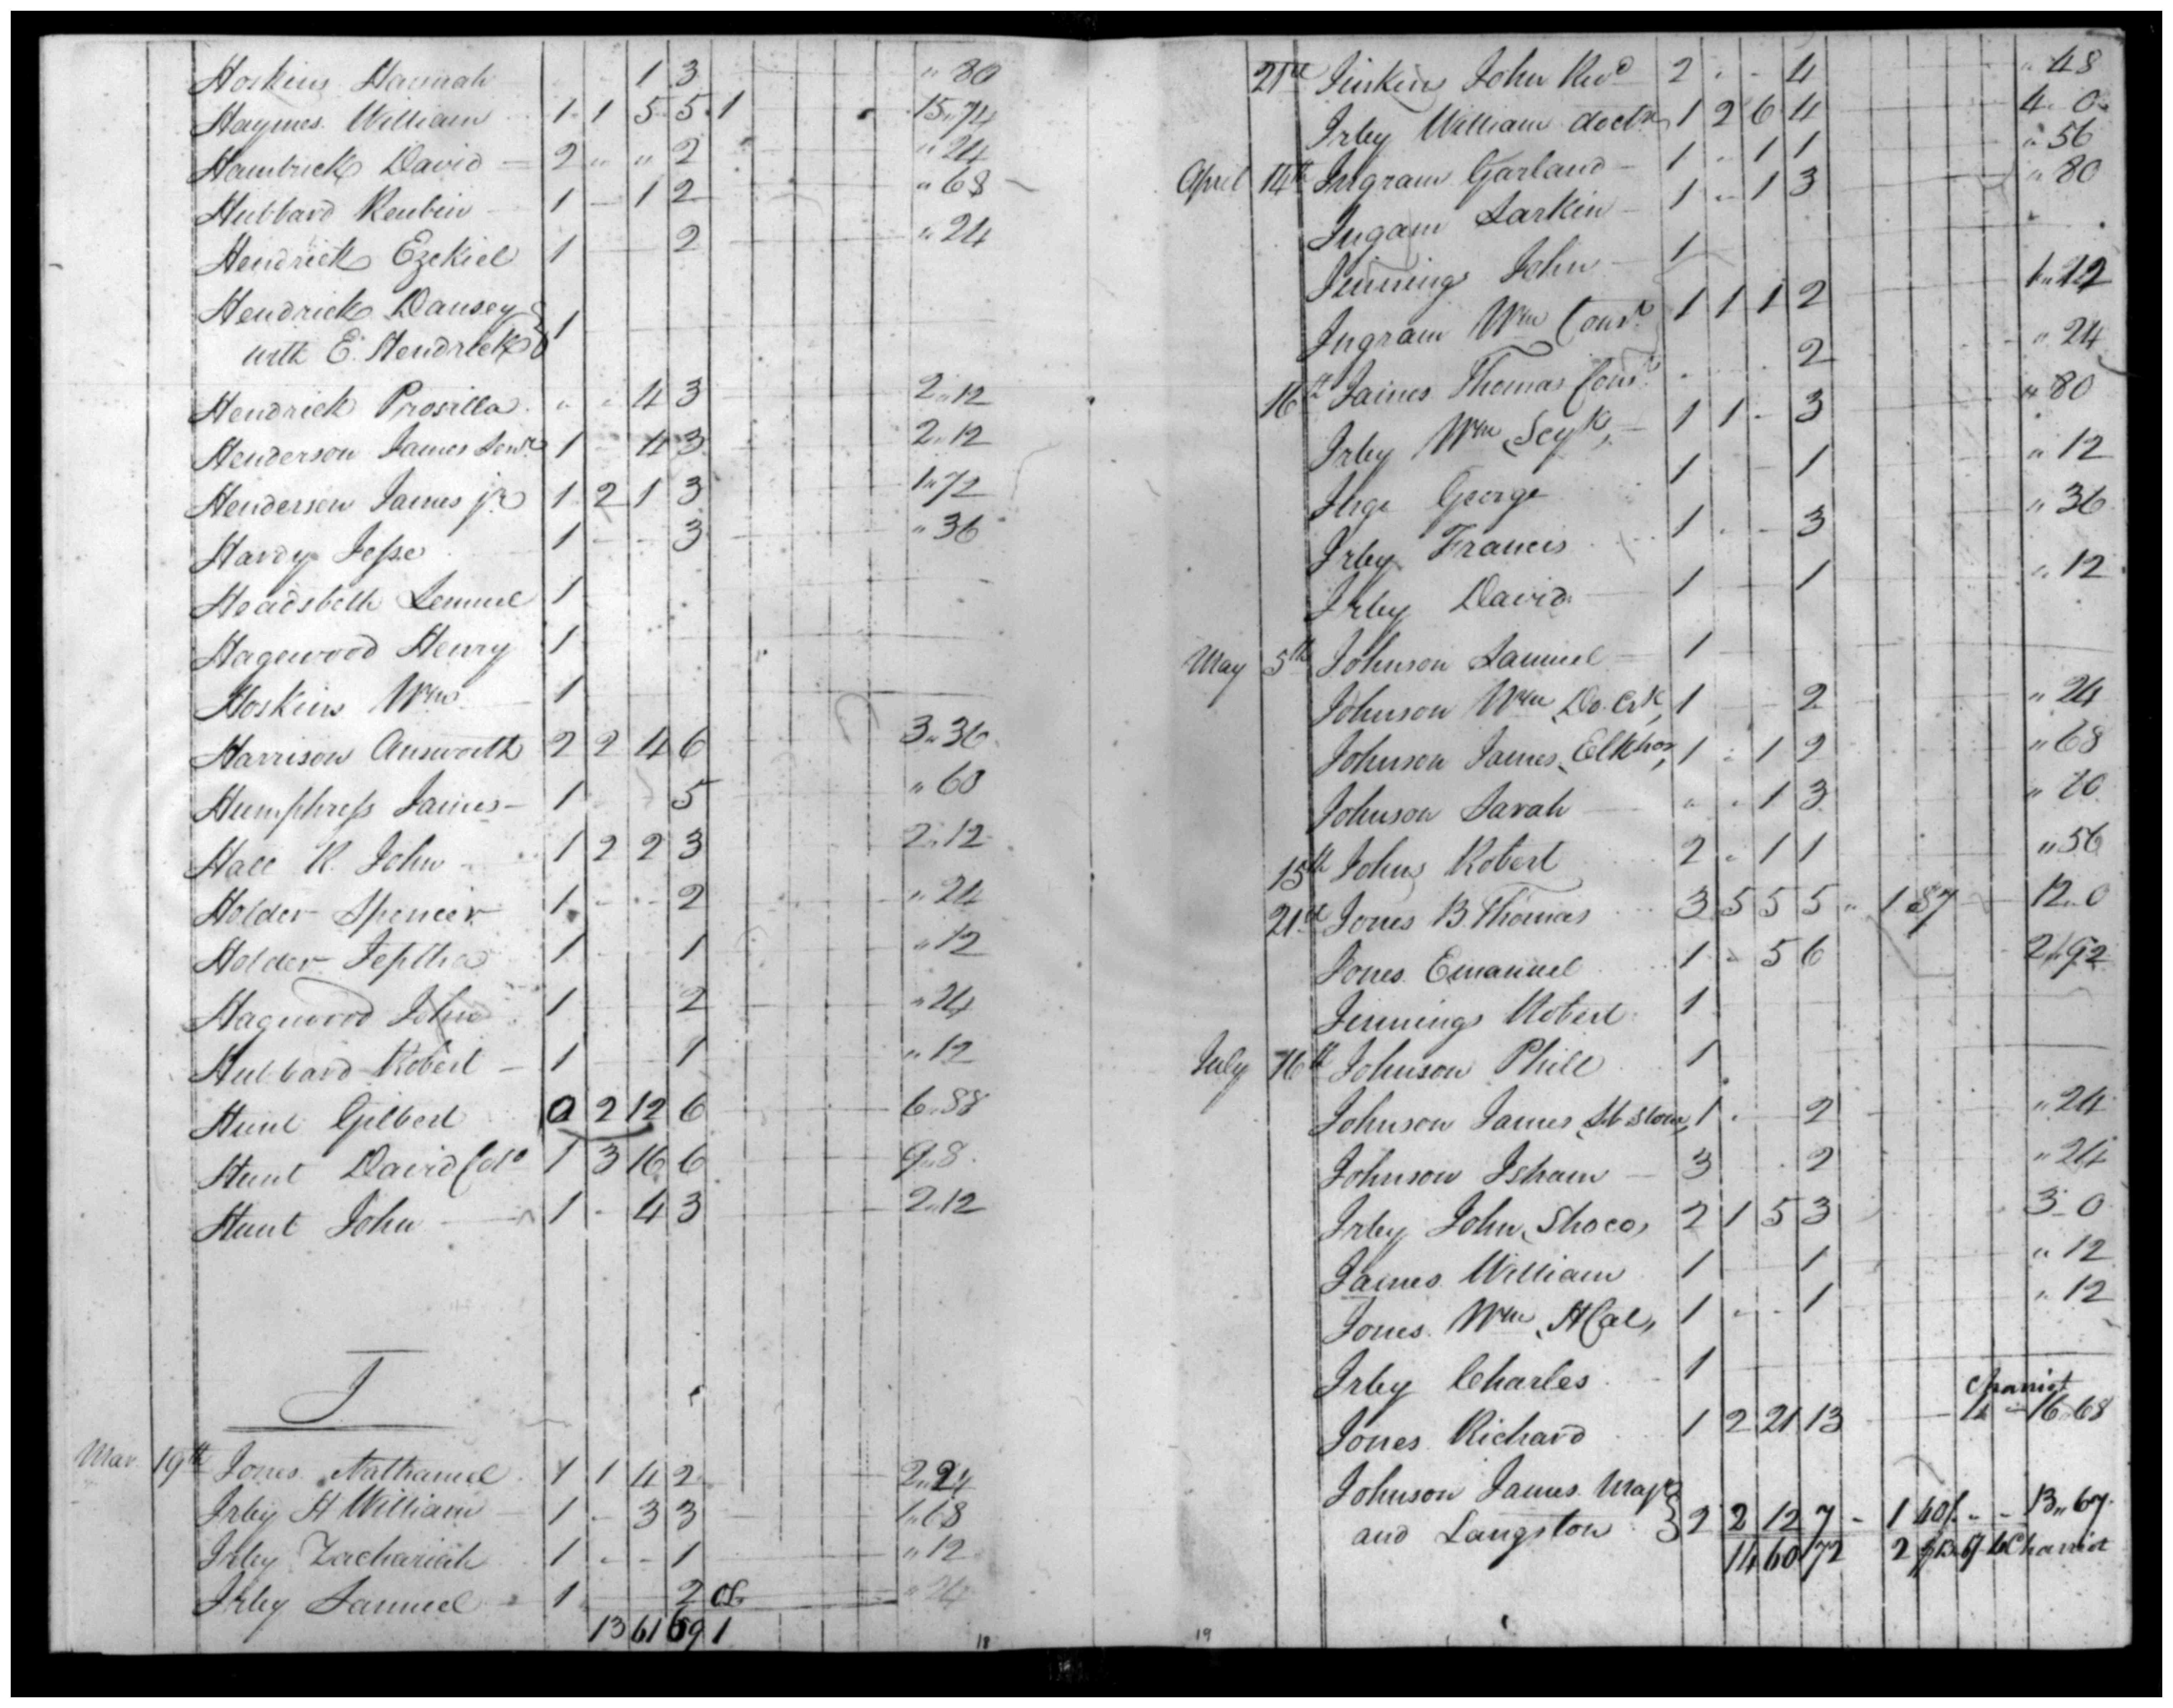 Hoskins Hannah 1 3 " 80
Haymes William 1 1 5 5 1 15 " 74
Hambrick David 2 " " 2 " 24
Hubbard Reubin 1 1 2 " 68
Hendrick Ezekiel 1 2 " 24
Hendrick Dansey
with E. Hendrick } 1
Hendrick Prosilla " " 4 3 2 " 12
Henderson James Senr 1 4 3 2 " 12
Henderson James jr 1 2 1 3 1 " 72
Hardy Jesse 1 3 " 36
Headsbeth Lemuel 1
Hagewood Henry 1
Hoskins Wm 1
Harrison Answorth 2 2 4 6 3 " 36
Humphress James 1 5 " 60
Hall R. John 1 2 2 3 2 " 12
Holder Spencer 1 2 " 24
Holder Jeptha 1 1 " 12
Hagewood John 1 2 " 24
Hubbard Robert 1 1 " 12
Hunt Gilbert 0 2 12 6 6 " 88
Hunt David Colo 1 3 16 6 9 " 8
Hunt John 1 4 3 2 " 12
J
Mar 19th Jones Nathaniel 1 1 4 2 2 " 24
Irby H William 1 3 3 1 " 68
Irby Zachariah 1 1 " 12
Irby Samuel 1 2 " 24
13 61 69 1
18
21st Jinkins John Revd 2 4 " 48
Irby William doctr 1 2 6 4 4 " 0
April 14th Ingram Garland 1 1 1 " 56
Ingam Larkin 1 1 3 " 80
Jinnings John 1
Ingram Wm Const 1 1 1 2 1 " 12
16th James Thomas Const 2 " 24
Irby Wm 1 1 3 " 80
Inge George 1 1 " 12
Irby Francis 1 3 " 36
Irby David 1 1 " 12
May 5th Johnson Samuel 1
Johnson Wm Do. Crk 1 2 " 24
Johnson James Elkhor 1 1 2 " 68
Johnson Sarah " " 1 3 " 80
15th Johns Robert 2 1 1 " 56
21st Jones B. Thomas 3 5 5 5 " 1 87 12 " 0
Jones Emanuel 1 5 6 2 " 92
Jinnings Robert 1
July 16th Johnson Phill 1
Johnson James 1 2 " 24
Johnson Isham 3 2 " 24
Irby John Shoco 2 1 5 3 3 " 0
James William 1 1 " 12
Jones Wm HCal 1 1 " 12
Irby Charles 1
Chariot
Jones Richard 1 2 21 13 1 16 " 68
Johnson James Majr
and Langston } 2 2 12 7 1 40 13 " 67
14 60 72 2 Chariot
19